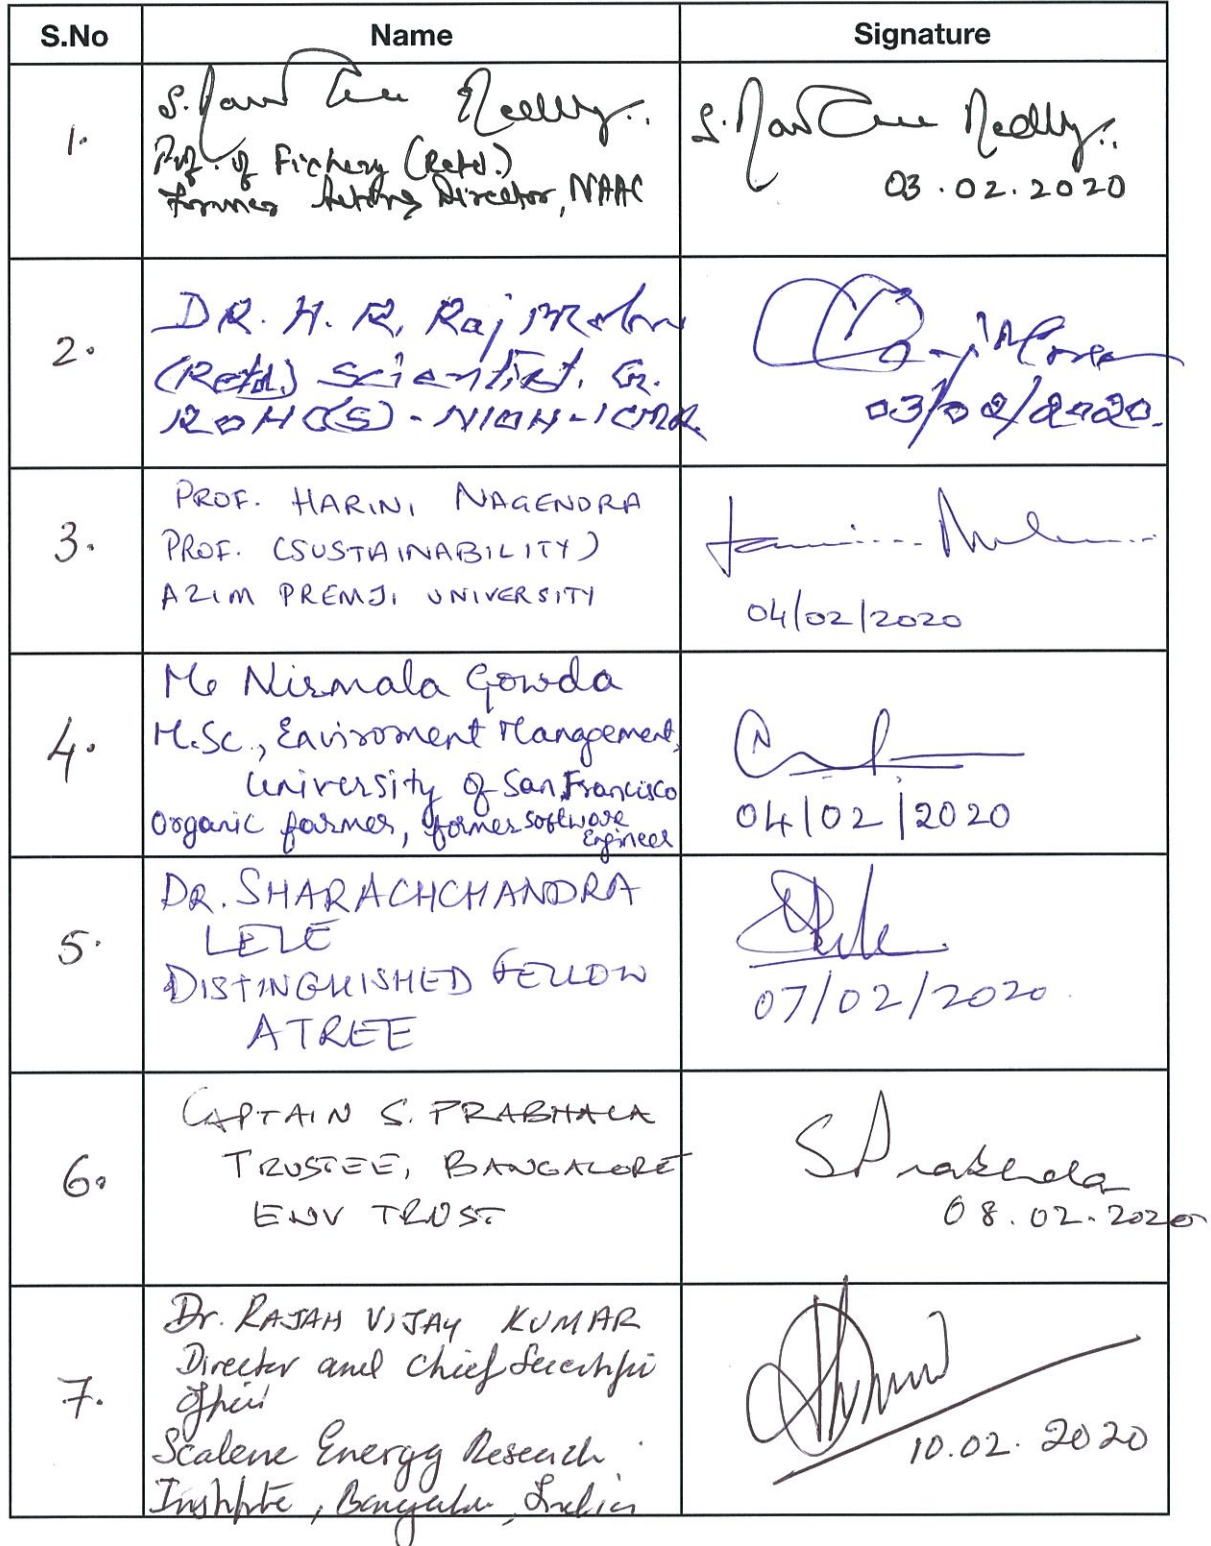 S.No Name Signature
1.
S. Reddy..
Prof. of Fichery (Retd.)
Former Acting Director, NAAC
S. Reddy..
03.02.2020
2.
DR. H. R. Raj Mohan
(Retd.) Scientist. G.
ROHC(S) - NIOH - ICMR.
03/02/2020.
3.
PROF. HARINI NAGENDRA
PROF. (SUSTAINABILITY)
AZIM PREMJI UNIVERSITY
04/02/2020
4.
Ms Nirmala Gowda
M.Sc., Enviroment Management,
University of San Francisco
Organic farmer, former software
Engineer
04/02/2020
5.
DR. SHARACHCHANDRA
LELE
DISTINGUISHED FELLOW
ATREE
07/02/2020
6.
CAPTAIN S. PRABHALA
TRUSTEE, BANGALORE
ENV TRUST
S Prabhala
08.02.2020
7.
Dr. RAJAH VIJAY KUMAR
Director and Chief Scientific
Officer
Scalene Energy Research
Institute, Bangalore, India
10.02.2020